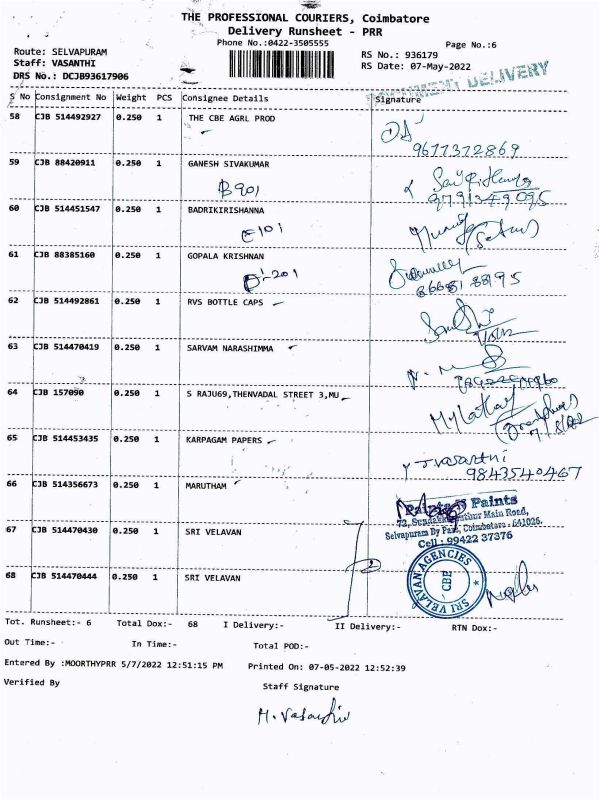 THE PROFESSIONAL COURIERS, Coimbatore
Delivery Runsheet - PRR
Phone No.:0422-3505555
Page No.:6
Route: SELVAPURAM
RS No.: 936179
Staff: VASANTHI
RS Date: 07-May-2022
DRS No.: DCJB93617906
DELIVERY
S No Consignment No Weight PCS Consignee Details Signature
58 CJB 514492927 0.250 1 THE CBE AGRL PROD
9677372869
59 CJB 88420911 0.250 1 GANESH SIVAKUMAR
B901
9791349095
60 CJB 514451547 0.250 1 BADRIKIRISHANNA
E101
61 CJB 88385160 0.250 1 GOPALA KRISHNAN
201
62 CJB 514492861 0.250 1 RVS BOTTLE CAPS
63 CJB 514470419 0.250 1 SARVAM NARASHIMMA
64 CJB 157090 0.250 1 S RAJU69,THENVADAL STREET 3,MU
65 CJB 514453435 0.250 1 KARPAGAM PAPERS
J vasanthi
9843540467
66 CJB 514356673 0.250 1 MARUTHAM
Paints
Main Road,
Coimbatore - 641026.
Cell : 99422 37376
67 CJB 514470430 0.250 1 SRI VELAVAN
68 CJB 514470444 0.250 1 SRI VELAVAN
SRI VELAVAN AGENCIES
CBE
Tot. Runsheet:- 6 Total Dox:- 68 I Delivery:- II Delivery:- RTN Dox:-
Out Time:- In Time:- Total POD:-
Entered By :MOORTHYPRR 5/7/2022 12:51:15 PM Printed On: 07-05-2022 12:52:39
Verified By Staff Signature